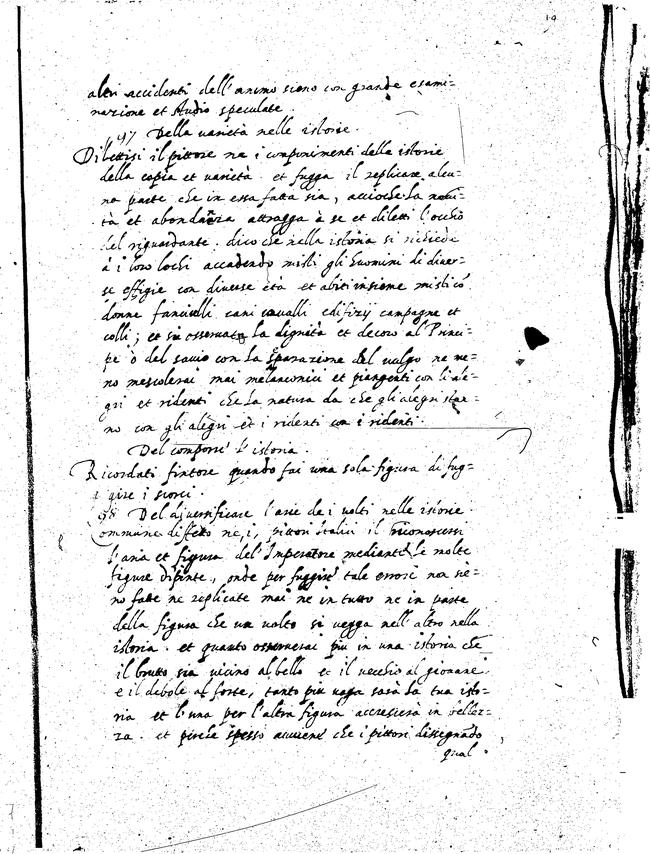 19
altri accidenti dell'animo siano con grande esami=
nazione et studio speculate.
97 Della varietà nelle istorie.
Dilettisi il pittore ne i componimenti delle istorie
della copia et varietà. et fugga il replicare alcu=
na parte che in essa fatta sia, accioche la novi=
tà et abondanza attragga à se et diletti l'occhio
del riguardante. dico che nella istoria si richiede
à i loro lochi accadendo misti gli huomini di diver=
se effigie con diverse età et abiti insieme misti cò
donne fanciulli cani cavalli edifizy campagne et
colli; et sia osservata la dignità et decoro al Prenci=
pe ò del savio con la separazione del vulgo ne me=
no mescolerai mai melanconici et piangenti con li ale=
gri et ridenti che la natura da che gli alegri stia=
no con gli alegri et i ridenti con i ridenti.
Del comporre l'istoria.
Ricordati fintore quando fai una sola figura di fug=
gire i scorci.
98 Del diversificare l'arie de i volti nelle istorie.
Commune difetto ne i pittori Italici il riconoscersi
l'aria et figura del'Imperatore mediante le molte
figure dipinte, onde per fuggire tale errore non sie=
no fatte ne replicate mai ne in tutto ne in parte
della figura che un volto si vegga nell'altro nella
istoria. et quanto osserverai più in una istoria che
il brutto sia vicino al bello et il vecchio al giovane
e il debole al forte, tanto più vaga sarà la tua isto=
ria et l'una per l'altra figura accrescierà in bellez=
za. et perche spesso avviene che i pittori dissegnado
qual